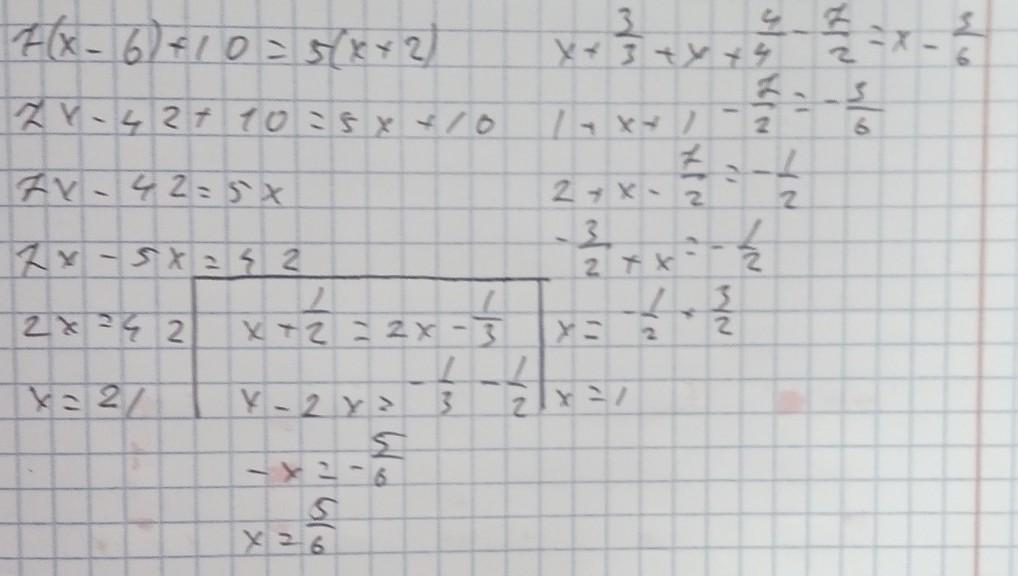 7(x-6)+10=5(x+2)
7x-42+10=5x+10
7x-42=5x
7x-5x=42
2x=42
x=21
x+1/2=2x-1/3
x-2x=-1/3-1/2
-x=-5/6
x=5/6
x+3/3+x+4/4-7/2=x-3/6
1+x+1-7/2=-3/6
2+x-7/2=-1/2
-3/2+x=-1/2
x=-1/2+3/2
x=1